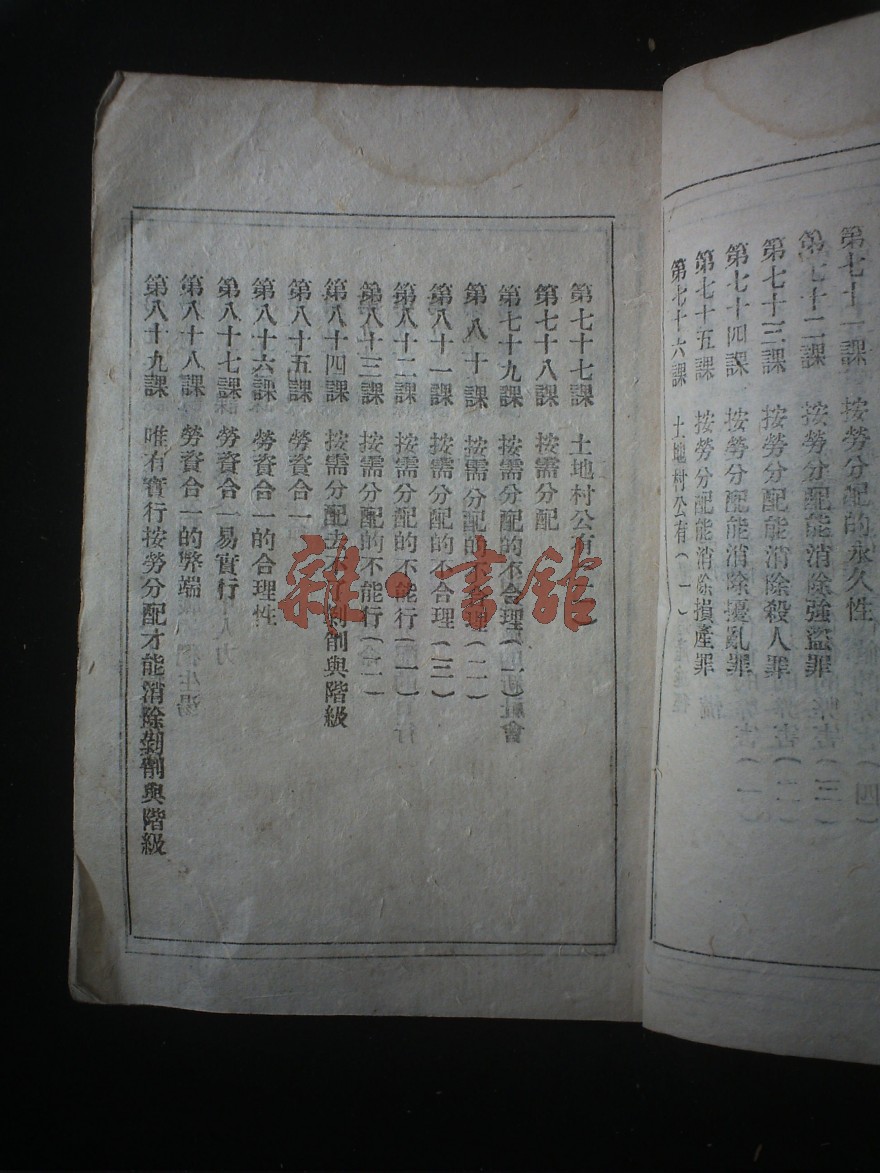 第七十一課　按勞分配的永久性
第七十二課　按勞分配能消除強盜罪
第七十三課　按勞分配能消除殺人罪
第七十四課　按勞分配能消除擾亂罪
第七十五課　按勞分配能消除損產罪
第七十六課　土地村公有(一)
第七十七課　土地村公有
第七十八課　按需分配
第七十九課　按需分配的不合理(一)
第八十課　按需分配的不合理(二)
第八十一課　按需分配的不合理(三)
第八十二課　按需分配的不能行(一)
第八十三課　按需分配的不能行(二)
第八十四課　按需分配去不了剝削與階級
第八十五課　勞資合一
第八十六課　勞資合一的合理性
第八十七課　勞資合一易實行
第八十八課　勞資合一的弊端
第八十九課　唯有實行按勞分配才能消除剝削與階級
雜·書館